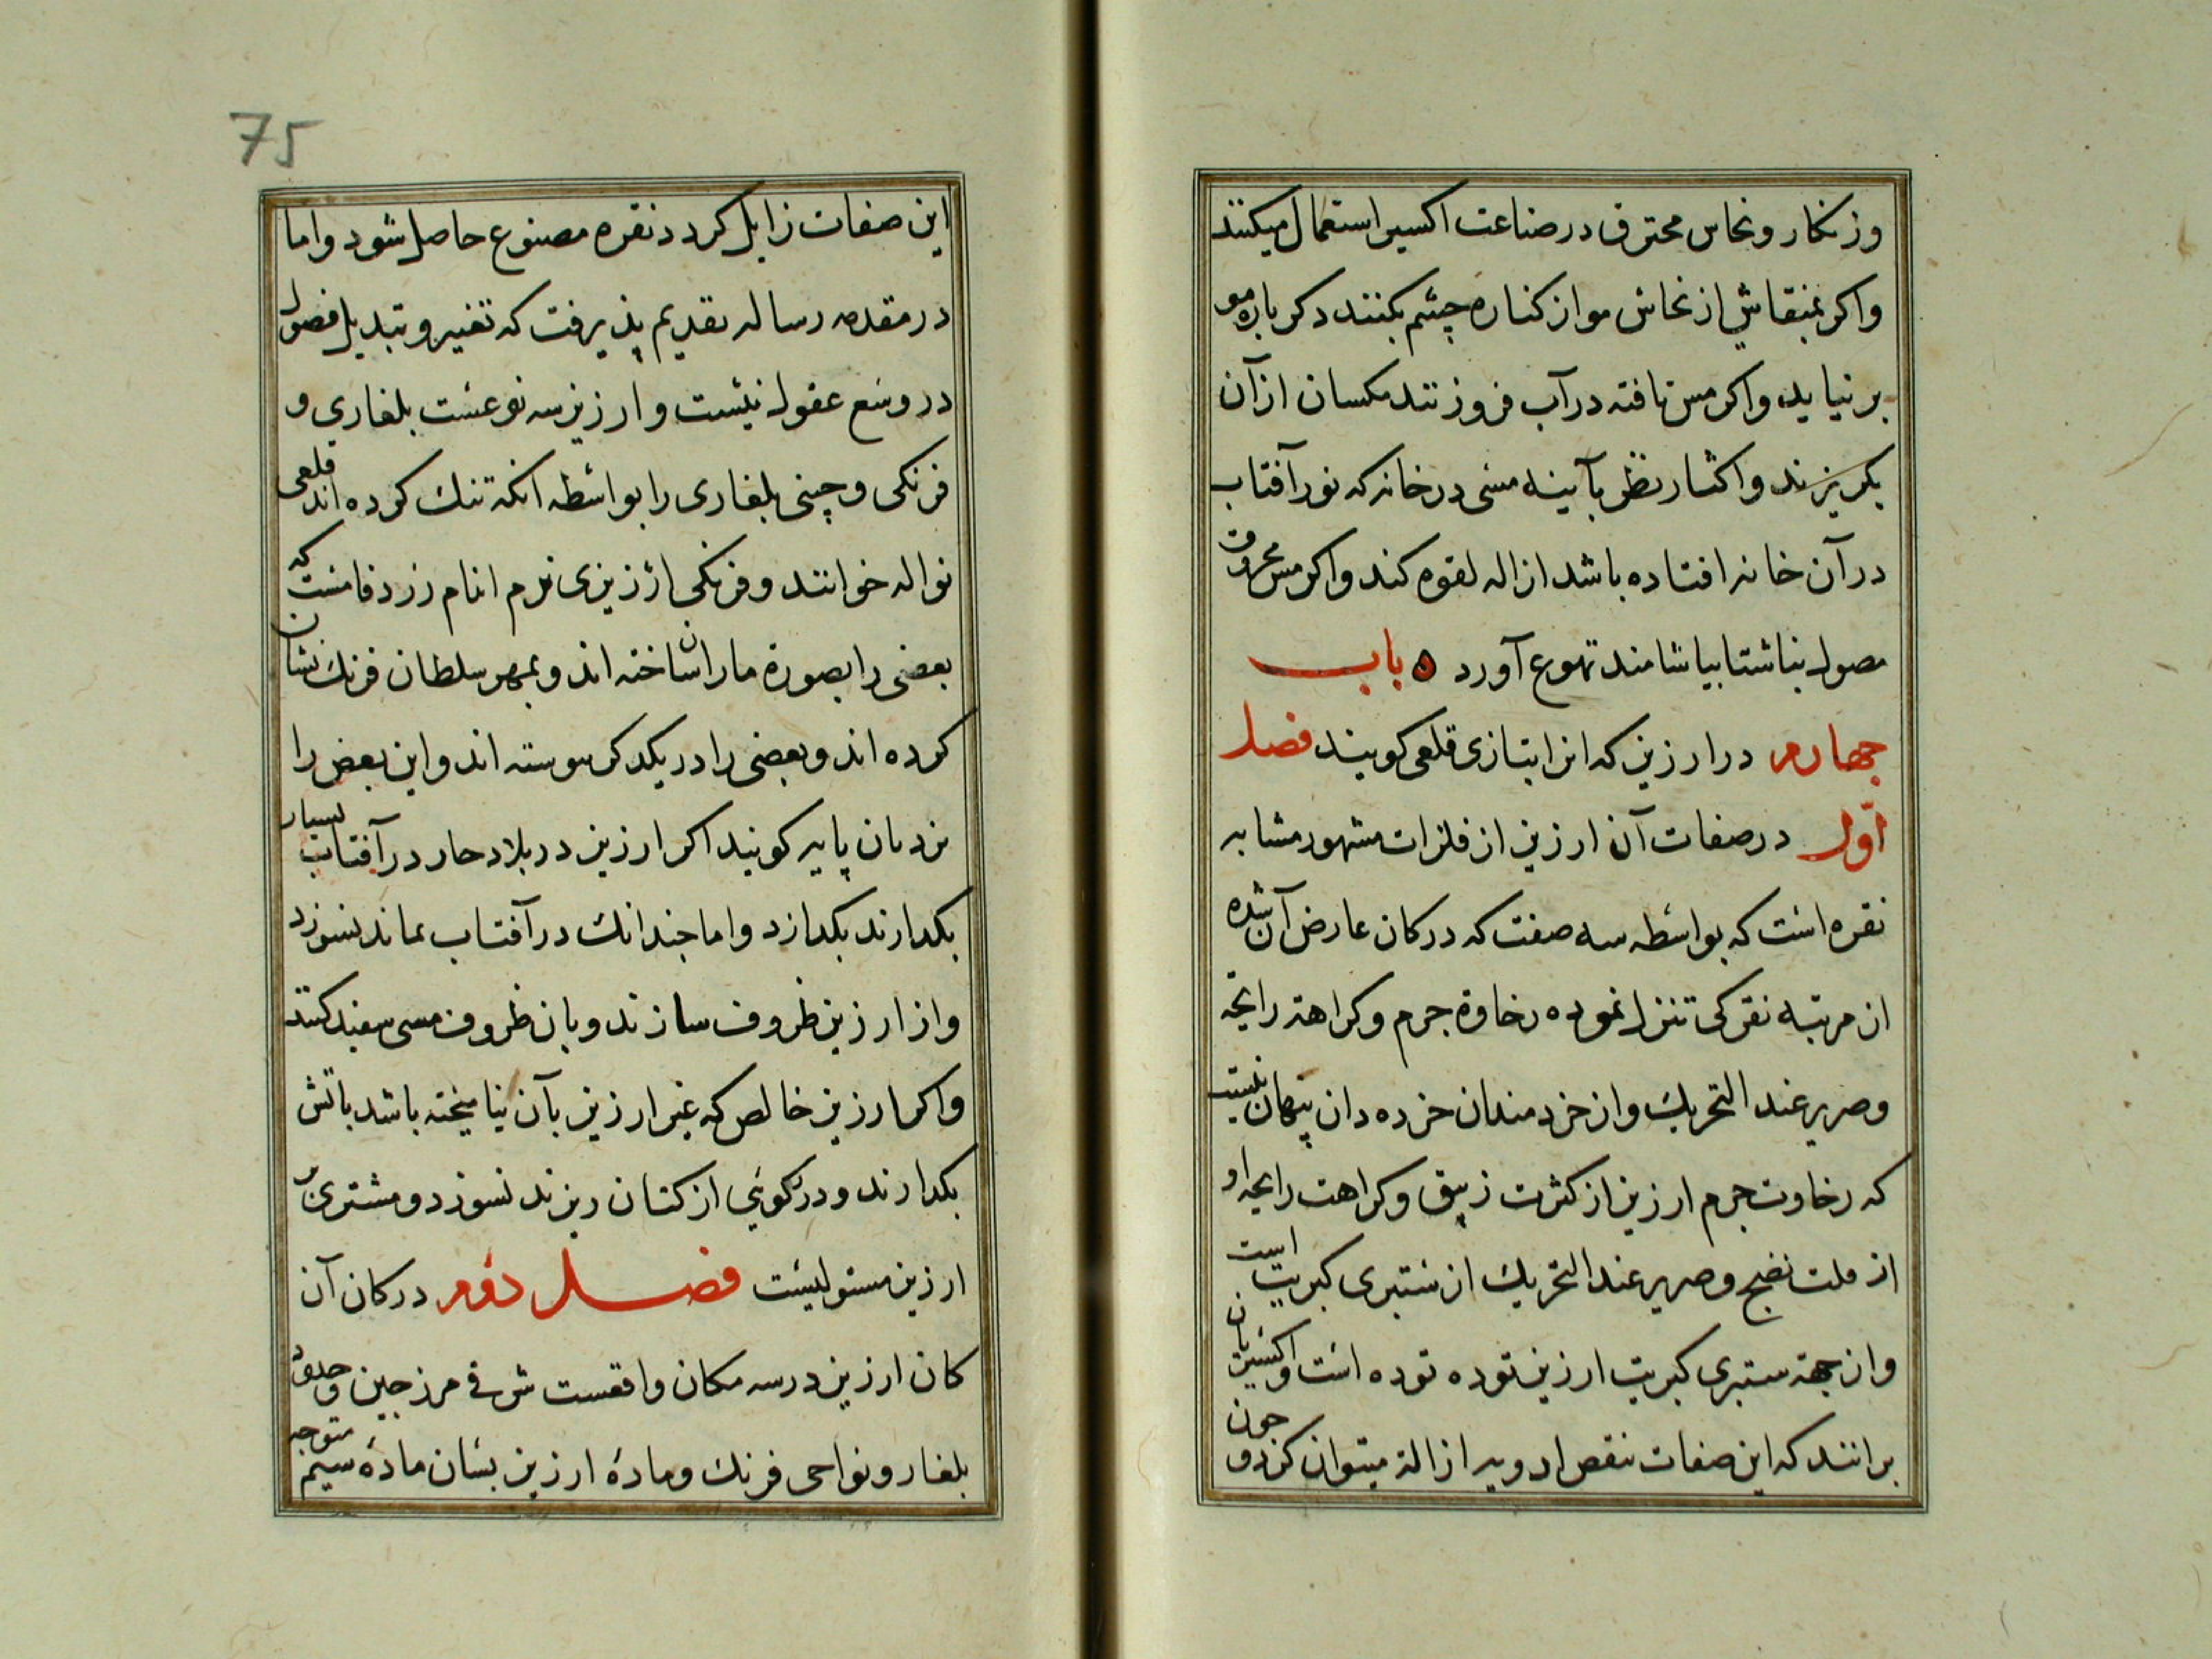 وزنکار ونحاس محترق در صناعت اکسیر استعمال میکنند
واکر بمنقاش از نحاس مو از کناره چشم بکنند دکر باره مو
بر نیاید واکر مس تافته در آب فرو زنند مکسان از آن
بکریزند واکثار نظر بآیینه مسی در خانه که نور آفتاب
در آن خانه افتاده باشد ازاله لقوه کند واکر مس محروق
مصول بناشتا بیاشامند تهوع آورد ه باب
جهارم در ارزیز که انرا بتازی قلعی کویند فصل
اول در صفات آن ارزیز از فلزات مشهور مشابه
نقره است که بواسطه سه صفت که در کان عارض آن شده
از مرتبه نقرکی تنزل نموده رخاوة جرم وکراهة رایحه
وصریر عند التحریک واز خردمندان خرده دان پنهان نیست
که رخاوت جرم ارزیز از کثرت زیبق وکراهت رایحه او
از قلت نضج وصریر عند التحریک از ستبری کبریت است
واز جهة ستبری کبریت ارزیز توده توده است واکسیریان
برانند که این صفات بنقص ادویه ازالة میتوان کرد و جون
75
این صفات زایل کردد نقره مصنوع حاصل شود واما
در مقدمه رساله تقدیم پذیرفت که تغییر وتبدیل فصول
در وسع عقول نیست وارزیز سه نوعست بلغاری و
فرنکی وچینی بلغاری را بواسطه انکه تنک کرده اند قلعی
نواله خوانند وفرنکی ارزیزی نرم اندام زرد فامست که
بعضی را بصورة ماران ساخته اند وبمهر سلطان فرنک نشان
کرده اند وبعضی را در یکدکر پیوسته اند واین بعض را
نردبان پایه کویند اکر ارزیز در بلاد حار در آفتاب بسیار
بکدارند بکدازد واما جندانک در آفتاب بماند نسوزد
واز ارزیز ظروف سازند وبان ظروف مسی سفید کنند
واکر ارزیز خالص که غیر ارزیز بآن نیامیخته باشد باتش
بکدازند ودر کوئی از کتان ریزند نسوزد ومشتری بر
ارزیز مستولیست فصل دوم در کان آن
کان ارزیز در سه مکان واقعست شرقی مرز چین وحدود
بلغار ونواحی فرنک ومادۀ ارزیز بسان مادۀ سیم متوجه